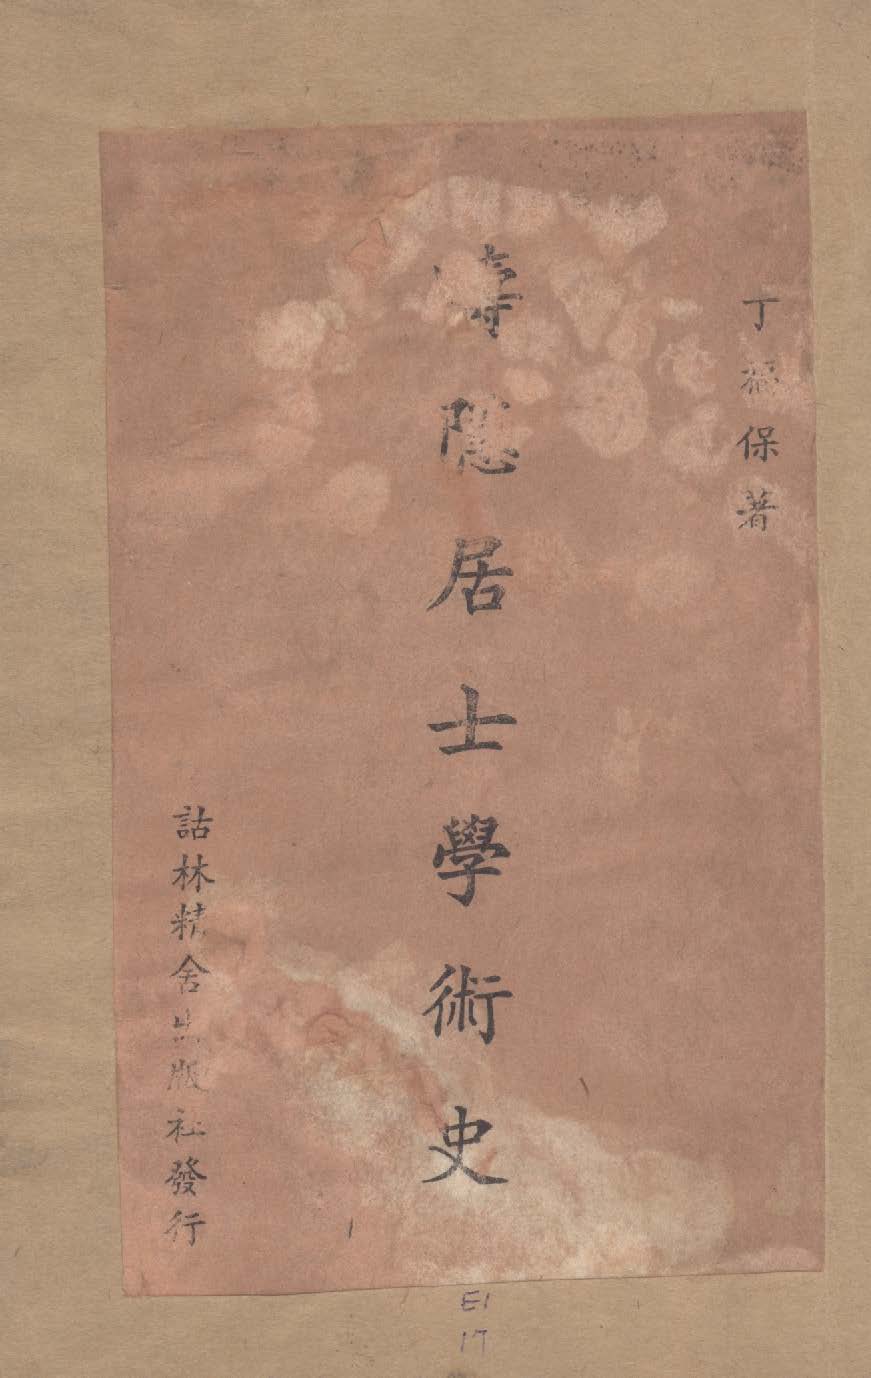 丁福保著
疇隱居士學術史
詁林精舍出版社發行
E1
17